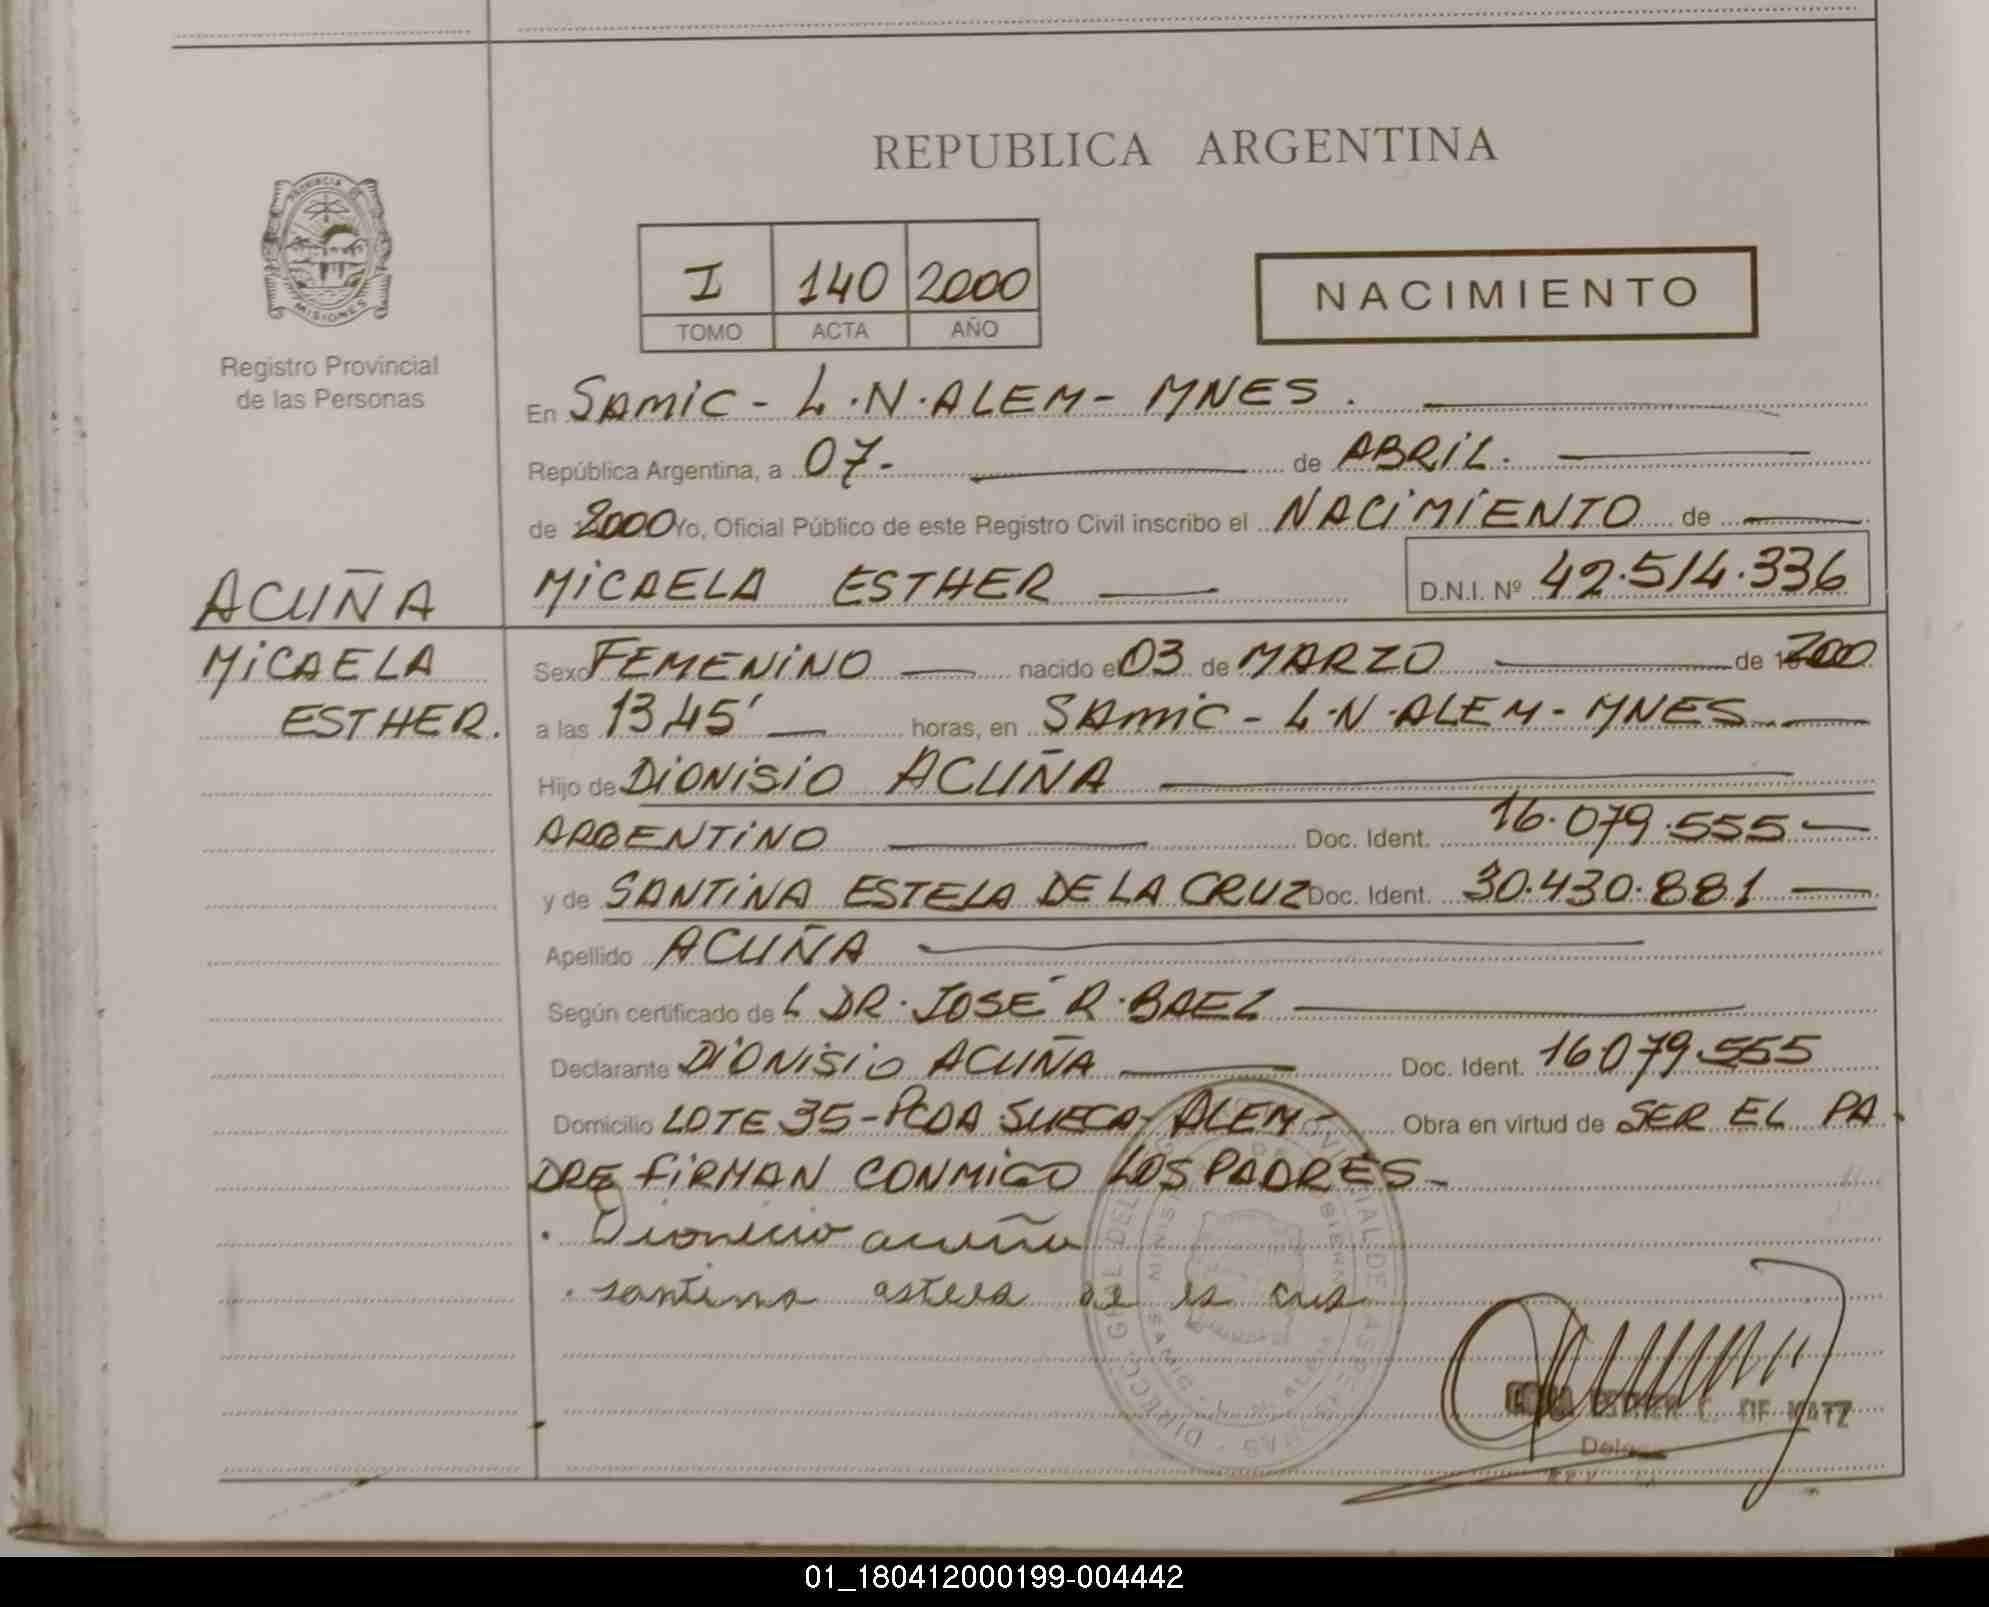 REPUBLICA ARGENTINA
PROVINCIA DE
MISIONES
Registro Provincial
de las Personas
I 140 2000
TOMO ACTA AÑO
NACIMIENTO
En SAMIC - L.N.ALEM - MNES.
República Argentina, a 07- de ABRIL.
de 2000 Yo, Oficial Público de este Registro Civil inscribo el NACIMIENTO de
ACUÑA
MICAELA
ESTHER.
MICAELA ESTHER
D.N.I. Nº 42.514.336
Sexo FEMENINO nacido el 03 de MARZO de 2000
a las 13,45' horas, en SAMIC - L.N.ALEM - MNES
Hijo de DIONISIO ACUÑA
ARGENTINO Doc. Ident. 16.079.555
y de SANTINA ESTELA DE LA CRUZ Doc. Ident. 30.430.881
Apellido ACUÑA
Según certificado de L DR. JOSÉ R. BAEZ
Declarante DIONISIO ACUÑA Doc. Ident. 16.079.555
Domicilio LOTE 35 - PCDA SUECA - ALEM - Obra en virtud de SER EL PA
DRE FIRMAN CONMIGO LOS PADRES -
Dionicio acuña
santina estela de la cus
C. DE KATZ
01_180412000199-004442